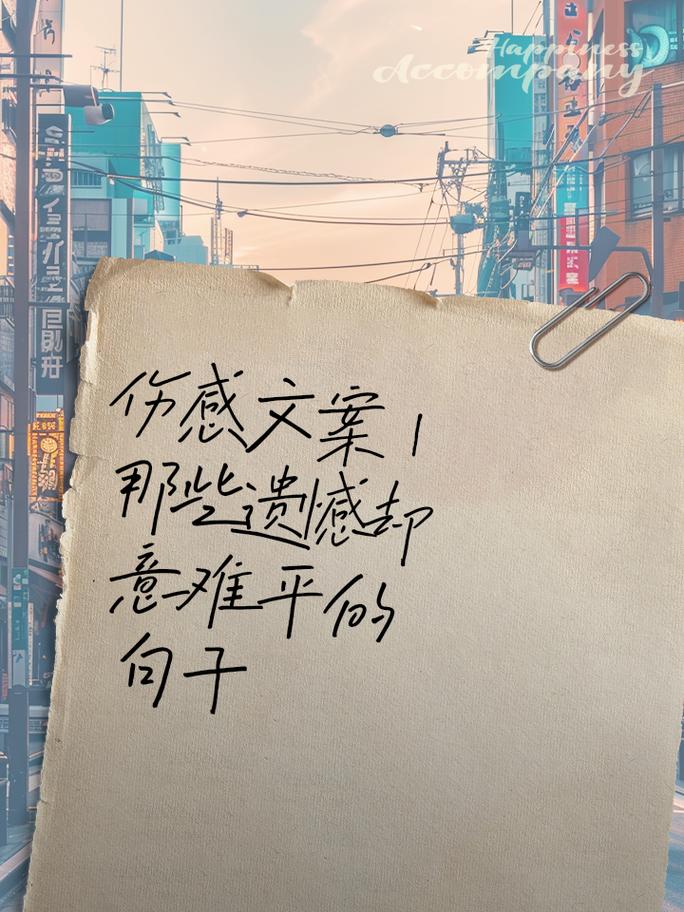 Happiness
Accompany
伤感文案|
那些遗憾却
意难平的
句子